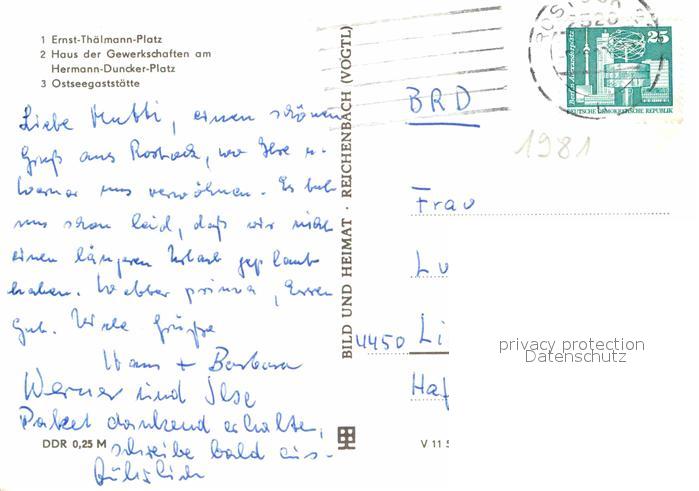 1 Ernst-Thälmann-Platz
2 Haus der Gewerkschaften am
Hermann-Duncker-Platz
3 Ostseegaststätte
Liebe Mutti, einen schönen
Gruß aus Rostock, wo Ilse u.
Werner uns verwöhnen. Es tut
uns schon leid, daß wir nicht
einen längeren Urlaub geplant
haben. Wetter prima, Essen
gut. Viele Grüße
Hans + Barbara
Werner und Ilse
Paket dankend erhalten,
schreibe bald aus-
führlich
DDR 0,25 M
BILD UND HEIMAT · REICHENBACH (VOGTL)
V 11 5
25
Berlin Alexanderplatz
DEUTSCHE DEMOKRATISCHE REPUBLIK
BRD
1981
Frau
Lu
4450 Li
Haf
privacy protection
Datenschutz